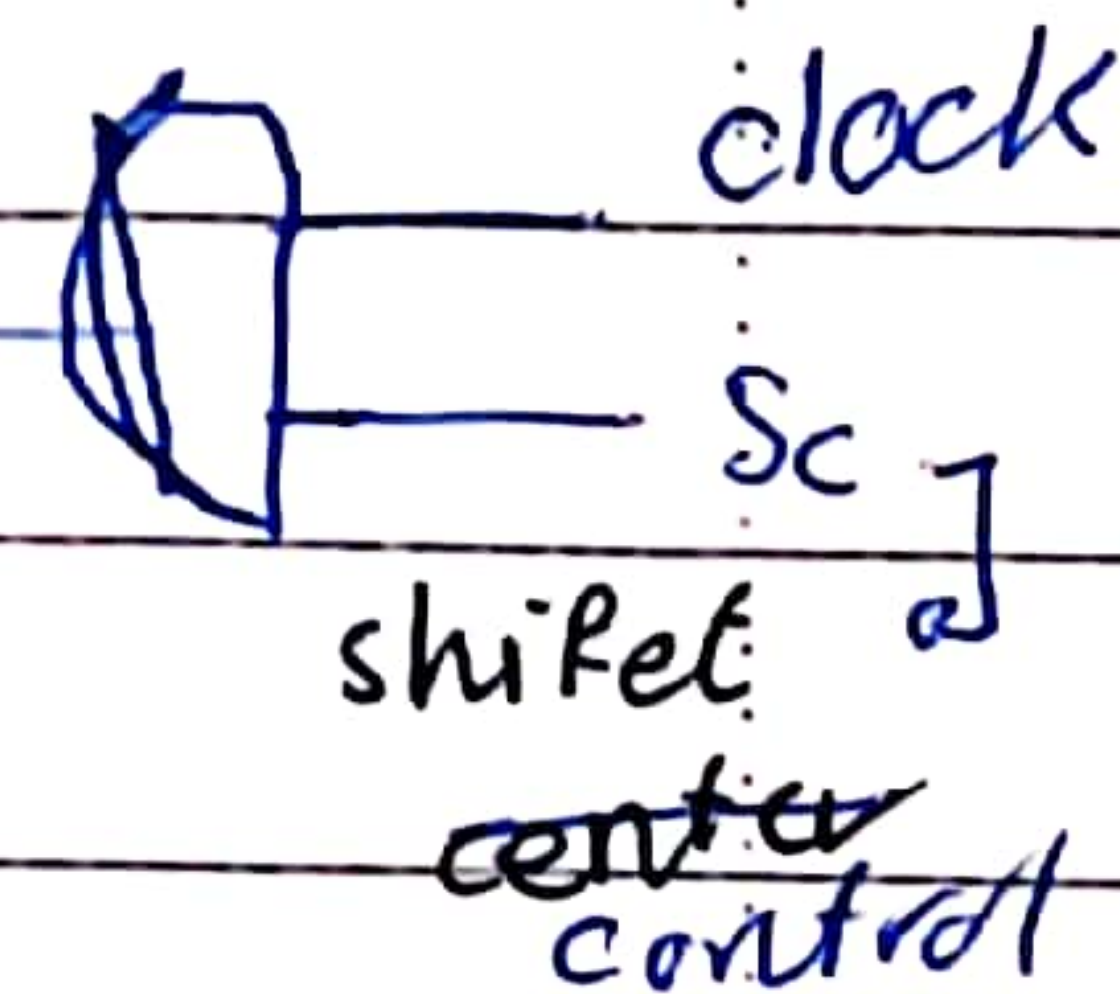 clock
Sc
shifet
center
control